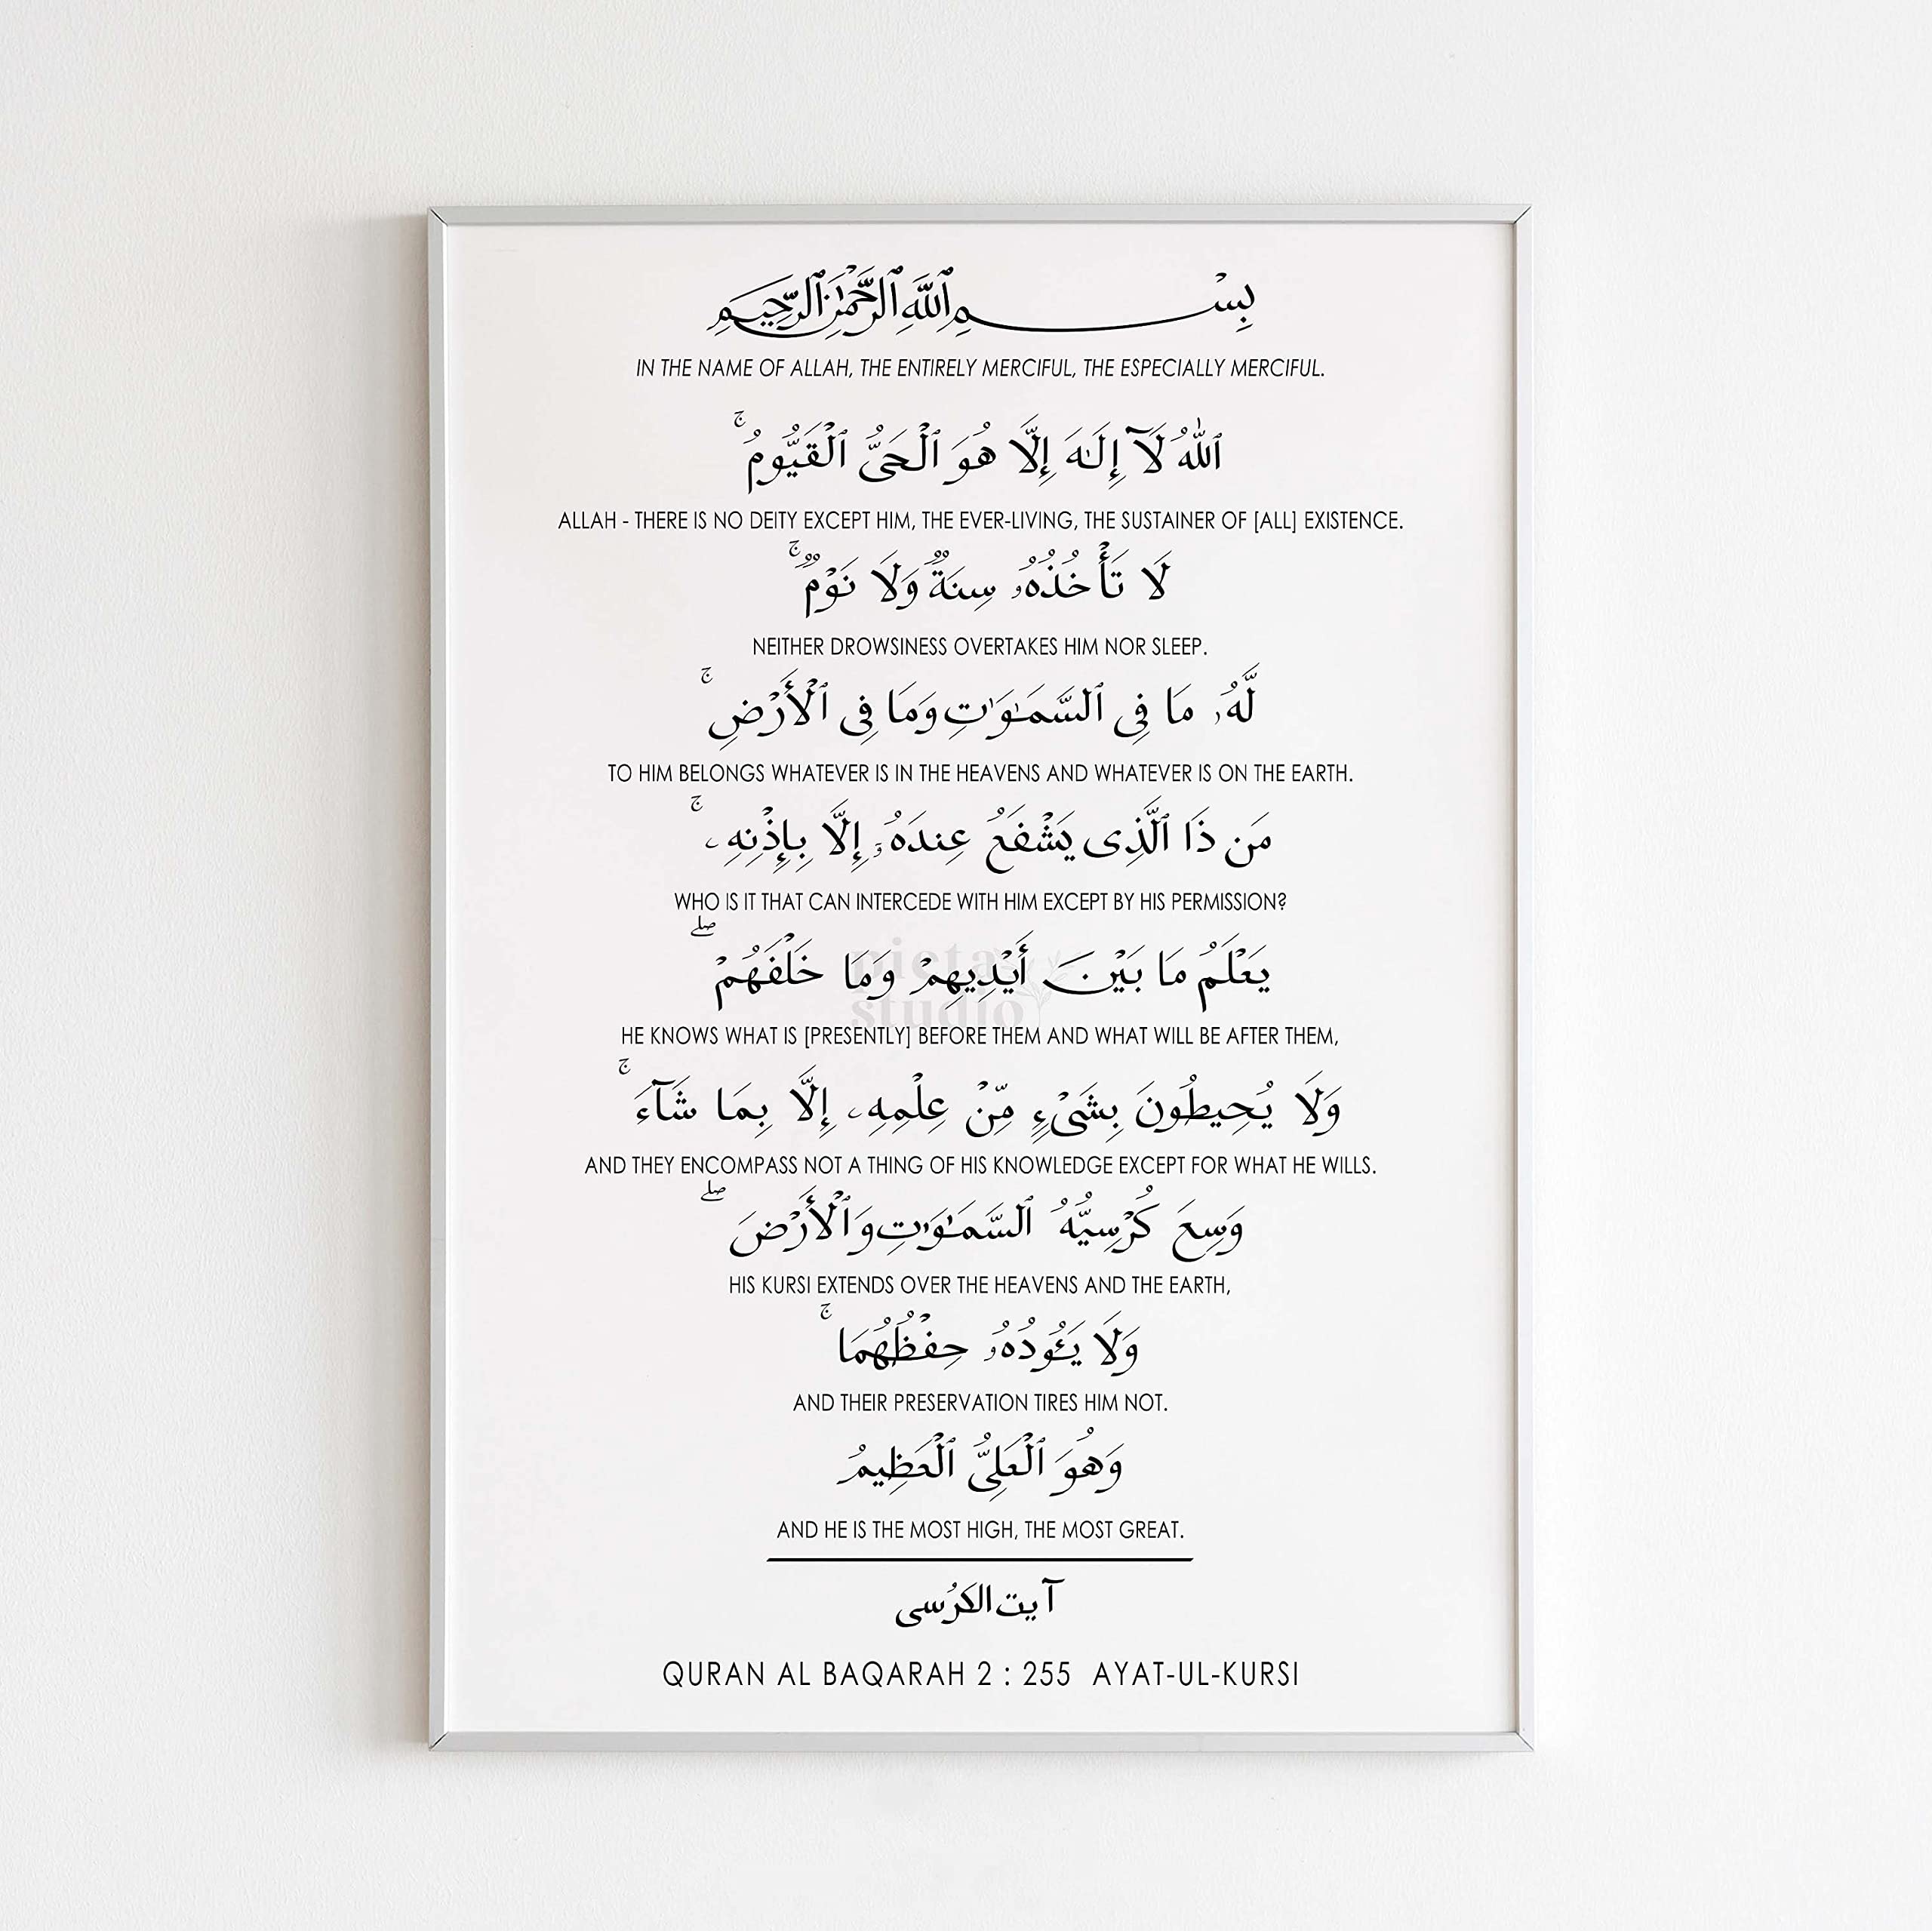 بِسْمِ ٱللَّهِ ٱلرَّحْمَٰنِ ٱلرَّحِيمِ
IN THE NAME OF ALLAH, THE ENTIRELY MERCIFUL, THE ESPECIALLY MERCIFUL.
ٱللَّهُ لَآ إِلَـٰهَ إِلَّا هُوَ ٱلْحَىُّ ٱلْقَيُّومُ ۚ
ALLAH - THERE IS NO DEITY EXCEPT HIM, THE EVER-LIVING, THE SUSTAINER OF [ALL] EXISTENCE.
لَا تَأْخُذُهُۥ سِنَةٌ وَلَا نَوْمٌ ۚ
NEITHER DROWSINESS OVERTAKES HIM NOR SLEEP.
لَّهُۥ مَا فِى ٱلسَّمَـٰوَٰتِ وَمَا فِى ٱلْأَرْضِ ۚ
TO HIM BELONGS WHATEVER IS IN THE HEAVENS AND WHATEVER IS ON THE EARTH.
مَن ذَا ٱلَّذِى يَشْفَعُ عِندَهُۥٓ إِلَّا بِإِذْنِهِۦ ۚ
WHO IS IT THAT CAN INTERCEDE WITH HIM EXCEPT BY HIS PERMISSION?
يَعْلَمُ مَا بَيْنَ أَيْدِيهِمْ وَمَا خَلْفَهُمْ ۖ
picta studio
HE KNOWS WHAT IS [PRESENTLY] BEFORE THEM AND WHAT WILL BE AFTER THEM,
وَلَا يُحِيطُونَ بِشَىْءٍ مِّنْ عِلْمِهِۦ إِلَّا بِمَا شَآءَ ۚ
AND THEY ENCOMPASS NOT A THING OF HIS KNOWLEDGE EXCEPT FOR WHAT HE WILLS.
وَسِعَ كُرْسِيُّهُ ٱلسَّمَـٰوَٰتِ وَٱلْأَرْضَ ۖ
HIS KURSI EXTENDS OVER THE HEAVENS AND THE EARTH,
وَلَا يَـُٔودُهُۥ حِفْظُهُمَا ۚ
AND THEIR PRESERVATION TIRES HIM NOT.
وَهُوَ ٱلْعَلِىُّ ٱلْعَظِيمُ
AND HE IS THE MOST HIGH, THE MOST GREAT.
آیت الکرُسی
QURAN AL BAQARAH 2 : 255 AYAT-UL-KURSI